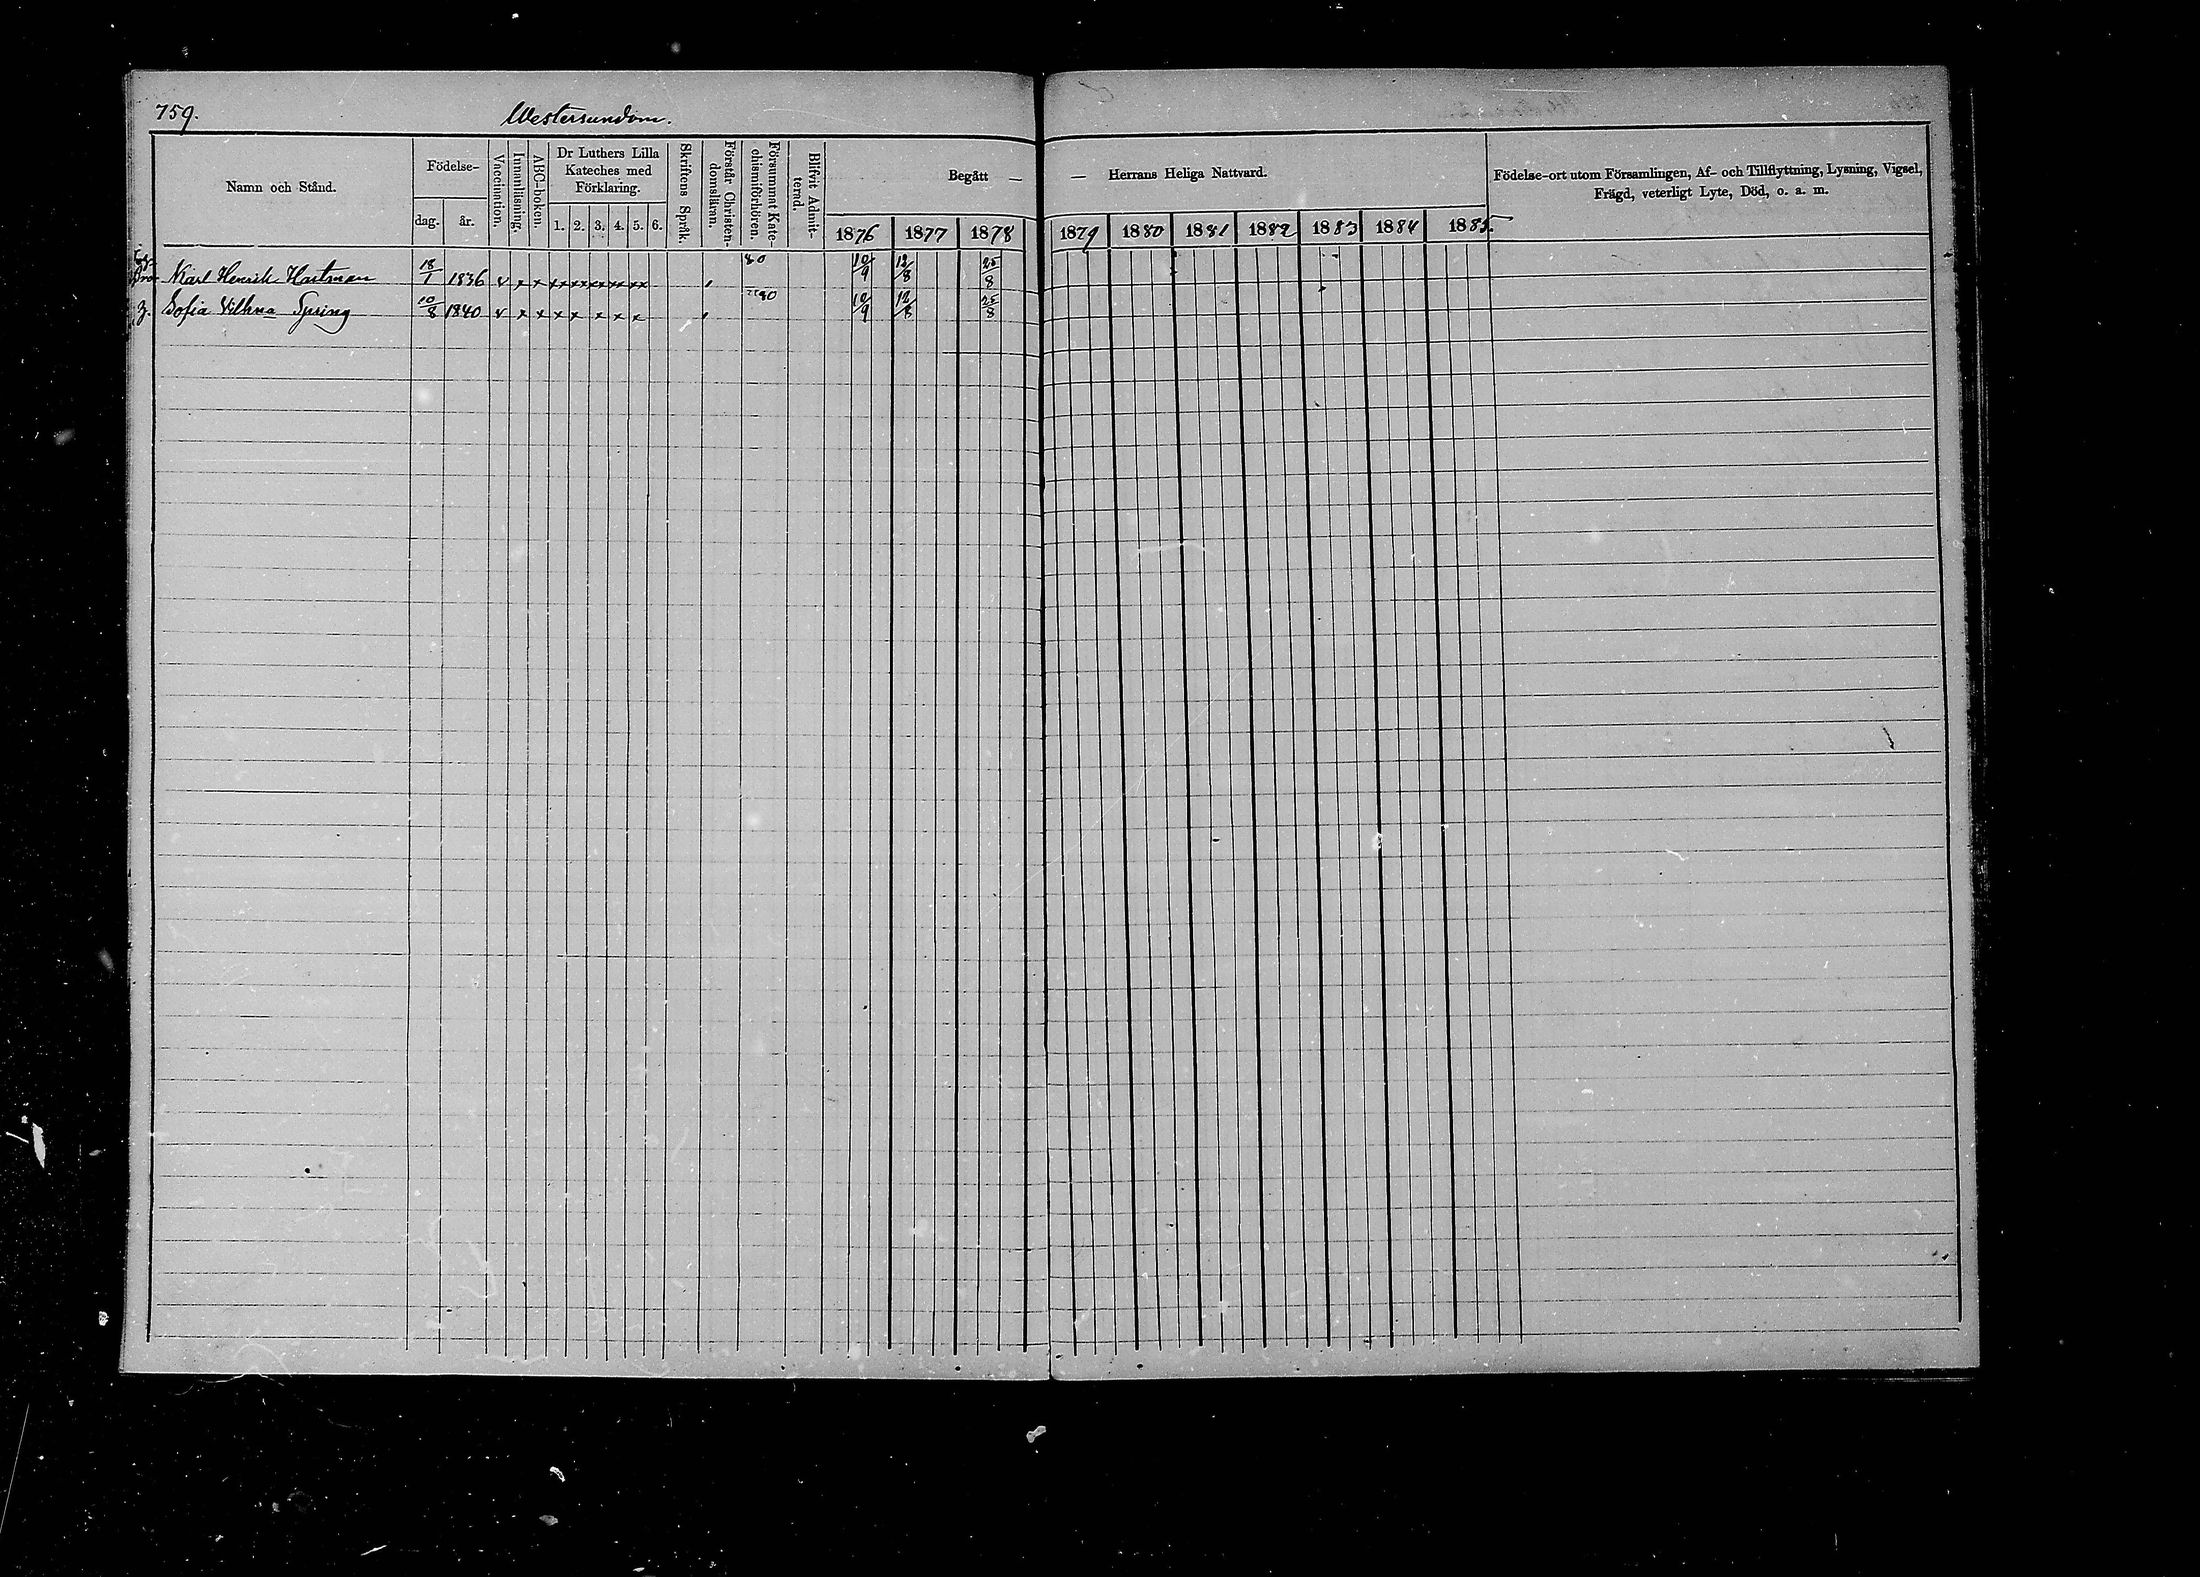 759. Westersundom.
Namn och Stånd. Födelse- dag. år. Vaccination. Innanläsning. ABC-boken. Dr Luthers Lilla Kateches med Förklaring. 1. 2. 3. 4. 5. 6. Skriftens Språk. Förstår Christendomsläran. Försummat Katechismiförhören. Blifvit Admitterad. Begått — — Herrans Heliga Nattvard. Födelse-ort utom Församlingen, Af- och Tillflyttning, Lysning, Vigsel, Frägd, veterligt Lyte, Död, o. a. m.
1876 1877 1878 1879 1880 1881 1882 1883 1884 1885.
Karl Henrik Hartman 18/1 1836 v x x x x x x x x x x x x 80 10/9 12/8 25/8
Sofia Vilhna Spring 10/8 1840 v x x x x x x x 80 10/9 12/8 25/8